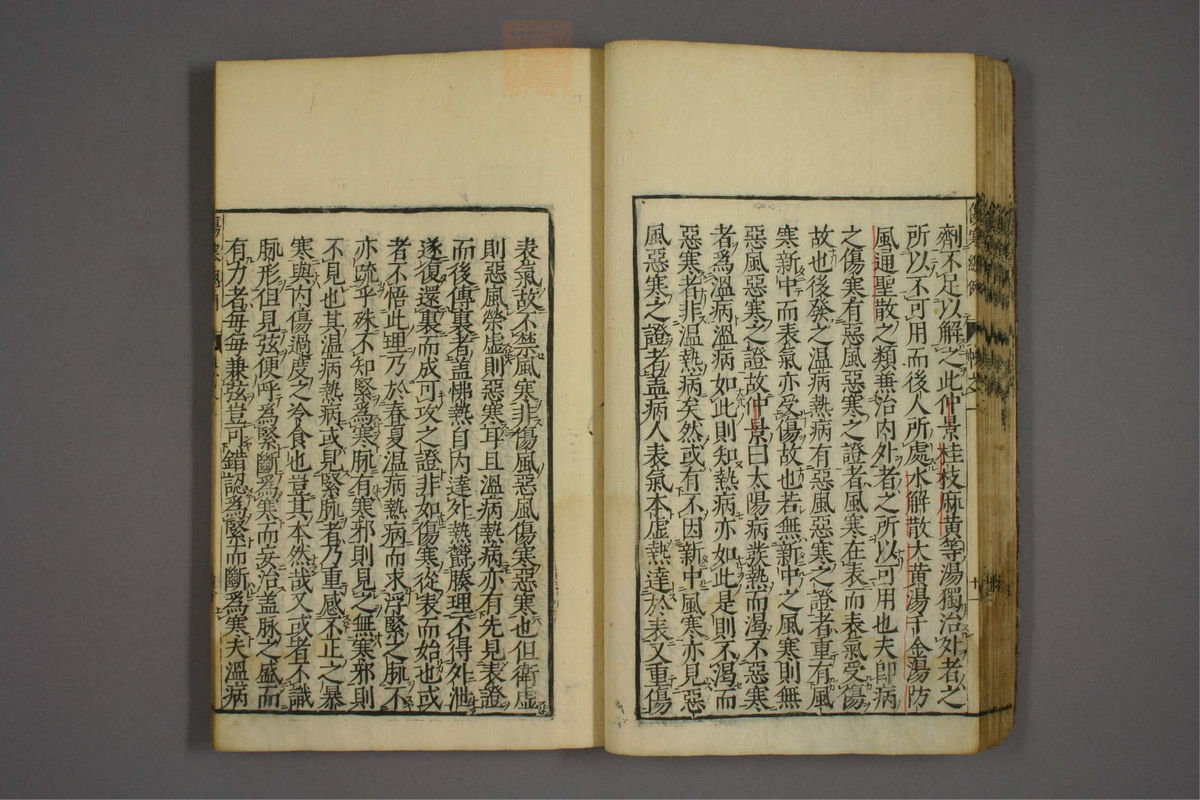 劑不足以解之此仲景桂枝麻黃等湯獨治外者之
所以不可用而後人所處水解散大黃湯千金湯防
風通聖散之類兼治内外者之所以可用也夫即病
之傷寒有惡風惡寒之證者風寒在表而表氣受傷
故也後發之温病熱病有惡風惡寒之證者重有風
寒新中而表氣亦受傷故也若無新中之風寒則無
惡風惡寒之證故仲景曰太陽病發熱而渴不惡寒
者爲溫病溫病如此則知熱病亦如此是則不渴而
惡寒者非温熱病矣然或有不因新中風寒亦見惡
風惡寒之證者盖病人表氣本虚熱達於表又重傷
表氣故不禁風寒非傷風惡風傷寒惡寒也但衛虚
則惡風榮虚則惡寒耳且溫病熱病亦有先見表證
而後傳裏者盖怫熱自内達外熱欝腠理不得外泄
遂復還裏而成可攻之證非如傷寒從表而始也或
者不悟此理乃於春夏温病熱病而求浮緊之脉不
亦疏乎殊不知緊爲寒脉有寒邪則見之無寒邪則
不見也其温病熱病或見緊脉者乃重感不正之暴
寒與内傷過度之冷食也豈其本然哉又或者不識
脉形但見弦便呼爲緊斷爲寒而妄治盖脉之盛而
有力者每每兼弦豈可錯認爲緊而斷爲寒夫溫病